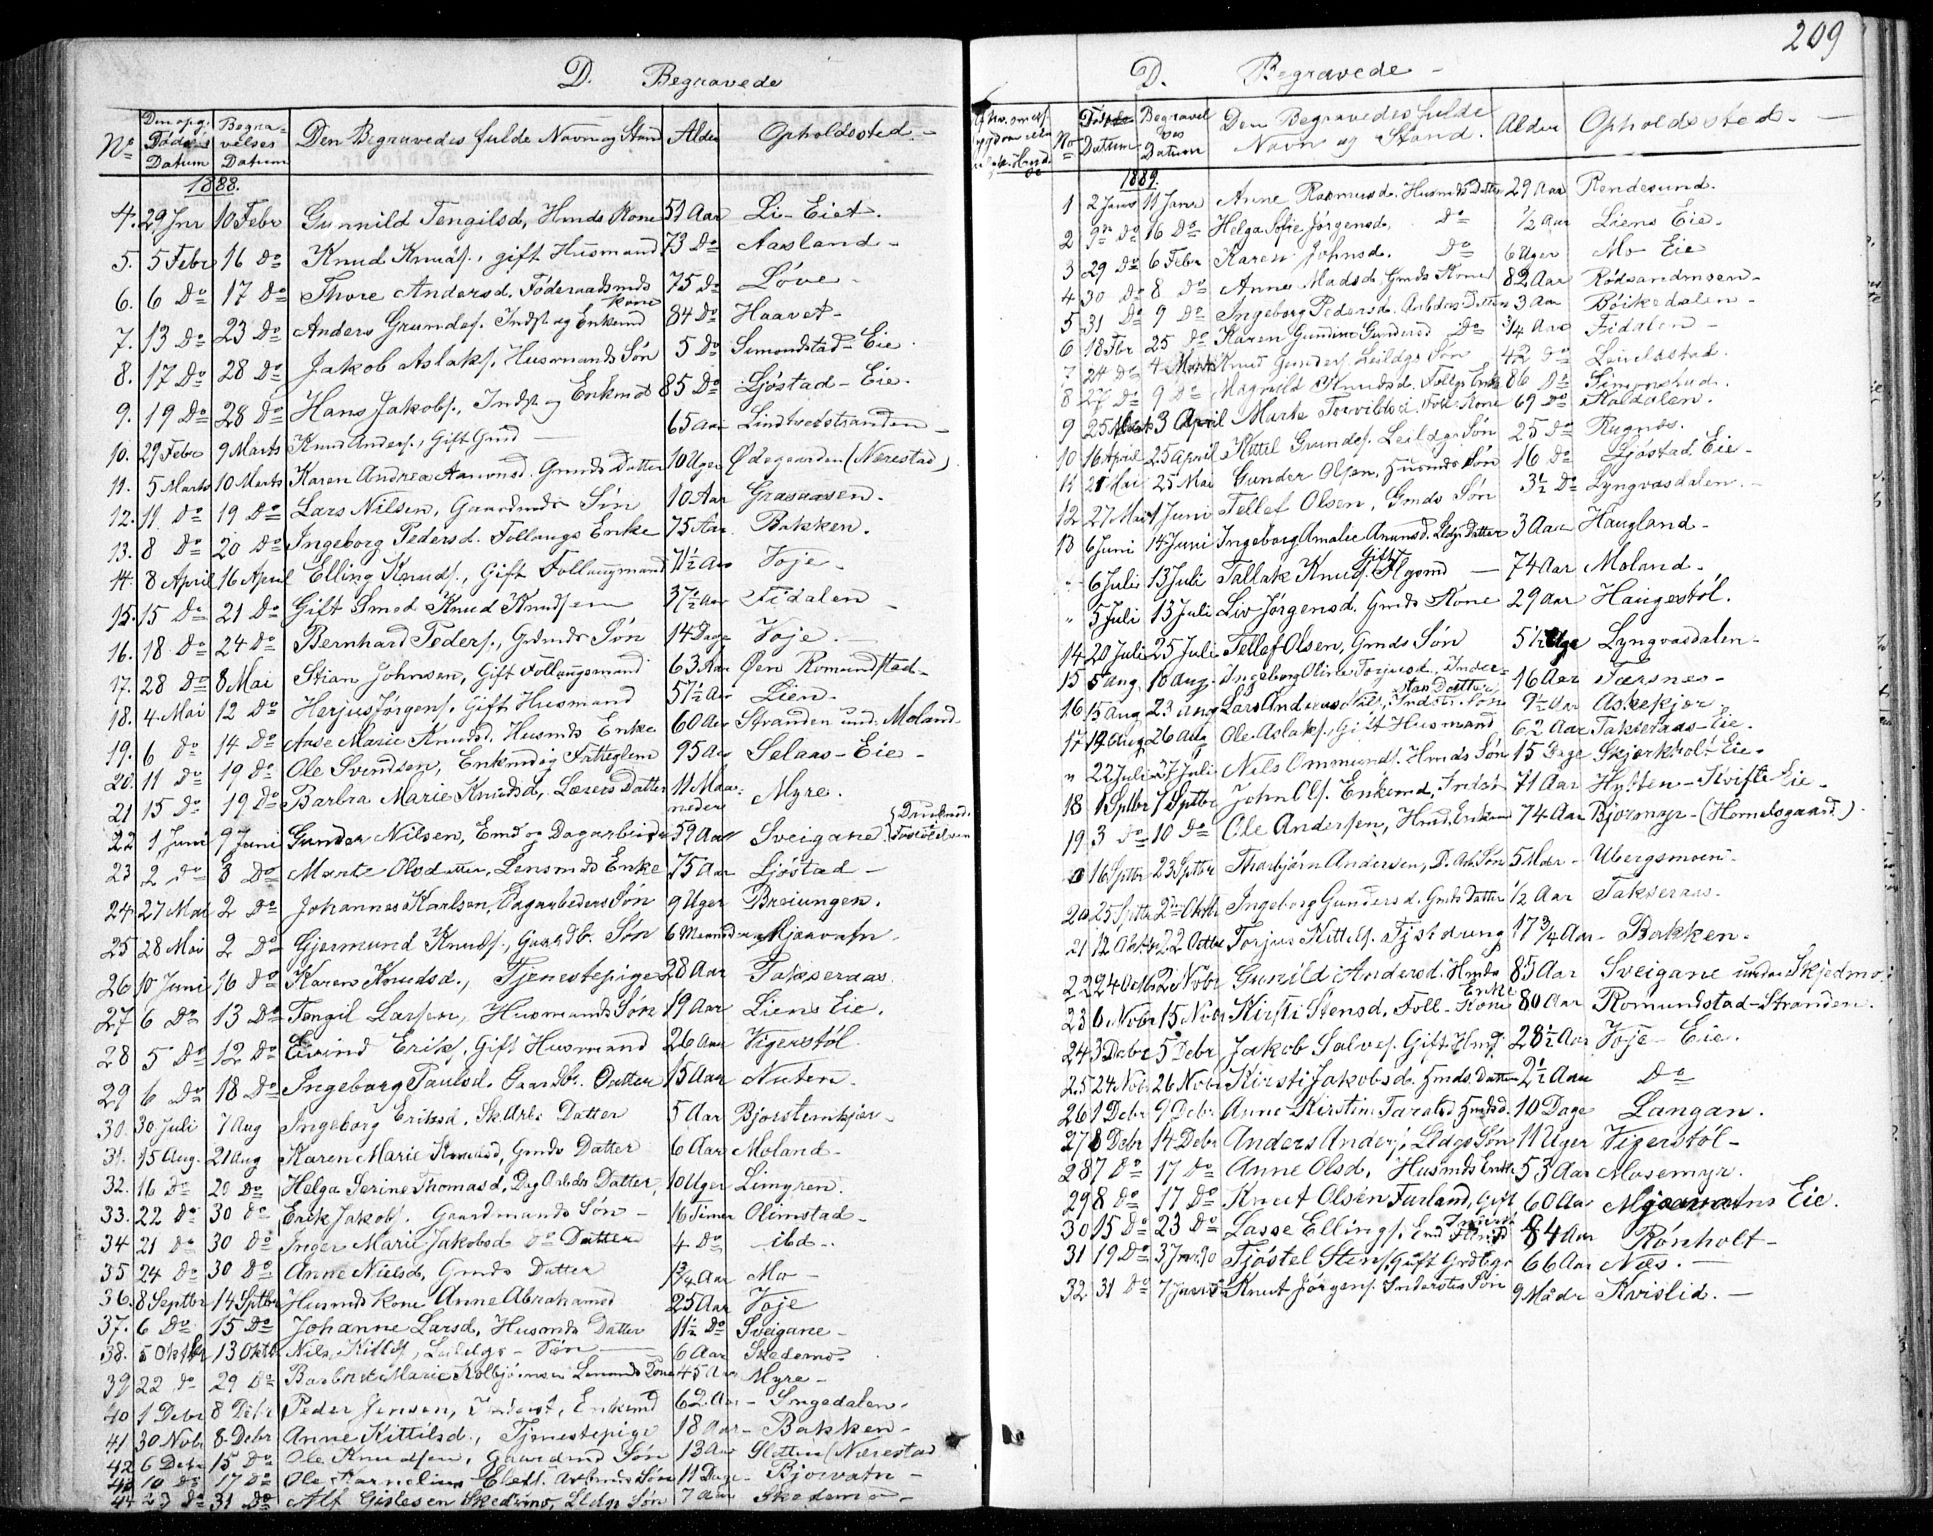 D. Begravede
No Den opg. Døds Datum Begravelses Datum Den Begravedes fulde Navn og Stand Alder Opholdssted
1888.
4. 29 Jnr 10 Febr Gunnild Tengilsd, Hmds Kone 51 Aar Li-Eiet.
5. 5 Febr 16 Do Knud Knuds., gift Husmand 73 Do Aasland
6. 6 Do 17 Do Thore Andersd. Føderaadsmds kone 75 Do Løve
7. 13 Do 23 Do Anders Grundes. Indst og Enkemd 84 Do Haavet
8. 17 Do 28 Do Jakob Aslaks, Husmands Søn 5 Do Simonstad-Eie
9. 19 Do 28 Do Hans Jakobs., Indst og Enkmd 85 Do Sjøstad-Eie.
10. 29 Febr 9 Marts Knud Anders., Gift Gmd 65 Aar Lindtveitstranden
11. 5 Marts 10 Marts Karen Andrea Aanonsd. Gmds Datter 10 Uger Ødegaarden (Nærestad)
12. 11 Do 19 Do Lars Nilsen, Gaardmds Søn 10 Aar Graaaasen.
13. 8 Do 20 Do Ingeborg Pedersd. Follaugs Enke 75 Aar Bakken.
14. 8 April 16 April Elling Knuds., Gift Follaugmand 71½ Aar Voje
15. 15 Do 21 Do Gift Smed Knud Knudsen 37½ Aar Fidalen
16. 18 Do 24 Do Bernhard Peders., Grdmds Søn 14 Dage Voje.
17. 28 Do 8 Mai Stian Johnsen, Gift Follaugsmand 63 Aar Øen Romundstad
18. 4 Mai 12 Do Herjus Jørgens. Gift Husmand 57½ Aar Lien
19. 6 Do 14 Do Aase Marie Knudsd. Husmds Enke 60 Aar Stranden und. Moland
20. 11 Do 19 Do Ole Svendsen, Enkemd og Fattiglem 95 Aar Selaas-Eie
21 15 Do 19 Do Barbra Marie Knudsd., Læsers Datter 11 Maaneder Myre.
22 1 Juni 9 Juni Gunder Nilsen, Emd og Dagarbeider 59 Aar Sveigane
23 2 Do 3 Do Marte Olsdatter, Lensmds Enke 75 Aar Sjøstad
24 27 Mai 2 Do Johannes Karlsen, Dagarbeders Søn 9 Uger Breiungen.
25 28 Mai 2 Do Gjermund Knuds., Gaardb. Søn 6 Maaneder Mjaavatn
26 10 Juni 16 Do Karen Knudsd., Tjenestepige 28 Aar Takseraas
27 6 Do 13 Do Tengil Larsen, Husmands Søn 19 Aar Liens Eie.
28 5 Do 12 Do Eivind Eriks. Gift Husmand 26 Aar Vigerstøl
29 6 Do 18 Do Ingeborg Paulsd. Gaardbr. Datter 15 Aar Nuten
30. 30 Juli 7 Aug Ingeborg Eriksd. Datter 5 Aar Bjorstemkjer
31. 15 Aug. 21 Aug Karen Marie Knudsd, Gmds Datter 6 Aar Moland
32. 16 Do 20 Do Helga Serine Thomasd, Dag Arbds Datter 10 Uger Limyren.
33. 22 Do 30 Do Erik Jakobs. Gaardmands Søn 16 Timer Olimstad
34 21 Do 30 Do Inger Marie Jakobsd Do Datter 4 Do ibd
35 24 Do 30 Do Anne Nielsd, Gmds Datter 1¾ Aar Mo
36. 8 Septbr 14 Sptbr Husmds kone Anne Abrahamsd 25 Aar Voje
37. 6 Do 15 Do Johanne Larsd, Husmds Datter 11½ Do Sveigane
38. 5 Oktbr 13 Oktb Nils Kittils, Leildgs Søn 6 Aar Skedemo
39 22 Do 29 Do Marie Kolbjørnsen Kone 45 Aar Myre
40 1 Debr 8 Debr Peder Jensen, Inderst, Enkemd 62 Aar Ingedalen.
41 30 Nobr 8 Debr Anne Kittilsd., Tjenestepige 18 Aar Bakken
42 6 Debr 15 Do Ole Knudsen, Gaardmd Søn 13 Aar Sletten (Nærestad
43 10 Do 17 Do Ole Kornelius Søn 11 Dage Bjorvatn
44 23 Do 31 Do Alf Gislesen Skedsmo, Lldgs Søn 7 Aar Skedemo
209
D. Begravede
No Døds Datum Begravelses Datum Den Begravedes fulde Navn og Stand. Alder Opholdssted.
1889.
1 2 Janr 11 Janr Anne Rasmusd. Husmds Datter 29 Aar Rendesund.
2 9de Do 16 Do Helga Sofie Jørgensd, Do ½ Aar Liens Eie
3 29 Do 6 Febr Karen Johnsd. Do 6 Uger Mo Eie
4 30 Do 8 Do Anne Madsd. Gmds Kone 82 Aar Rødsandmoen
5 31 Do 9 Do Ingeborg Pedersd. Arbdrs Datter 3 Aar Bøikedalen
6 18 Fbr 25 Do Karen Gundine Gundersd Do ¾ Aar Fidalen
7 24 Do 4 Marts Knud Gunders Leildgs Søn 42 Do
8 27 Do 9 Do Magnild Knudsd. Follgs Enke 86 Do Simonstad.
9 25 Marts 3 April Marte Torvildsd. Kone 69 Do Kaldalen.
10 16 April 25 April Kittil Grundes. Leildgs Søn 25 Do Rugnæs.
11 21 Mai 25 Mai Gunder Olsen, Husmds Søn 16 Do Sjøstad Eie
12 27 Mai 1 Juni Tellef Olsen, Gmds Søn 3½ Do Lyngvasdalen.
13 6 Juni 14 Juni Ingeborg Amalie Anunsd. Lldgs Datter 3 Aar Haugland
" 6 Juli 13 Juli Tallak Knuds. Gift Flgsmd 74 Aar Moland
" 5 Juli 13 Juli Liv Jørgensd. Gmds Kone 29 Aar Haugestøl.
14 20 Juli 25 Juli Tellef Olsen, Gmds Søn 5½ Uge Lyngvasdalen
15 5 Aug. 10 Aug. Ingeborg Oline Torjusd. Inderstes Datter 16 Aar Tærsnes
16 15 Aug 23 Aug Lars Andreas Nils, Indst. Søn 9½ Aar Askekjær
17 19 Aug 26 Aug Ole Aslaks, Gift Husmand 62 Aar Takseraas-Eie.
" 22 Juli 27 Juli Nils Ommunds. Hmds Søn 15 Dage Skjerkholt-Eie
18 1 Sptbr 7 Sptbr John Ols. Enkemd, Indst. 71 Aar Hylten-Kvifte Eie
19 3 Do 10 Do Ole Andersen, Hmd, Enkem 74 Aar Bjørmyr-(Hemelsgaard)
" 16 Sptbr 23 Sptbr Thorbjørn Andersen, D. Arb. Søn 5 Mdr Ubergsmoen
20 25 Sptbr 2den Oktbr Ingeborg Gundersd. Gmds Datter ½ Aar Takseraas.
21 12 Oktbr 22 Octbr Torjus Kittels. Tjstdreng 17¾ Aar Bakken
22 24 Octbr 2 Nobr Gunild Andersd. Hmds Enke 85 Aar Sveigane under Skjedmo
23 6 Nobr 15 Nobr Kirsti Stensd, Foll-Kone 80 Aar Romundstad-Stranden.
24 3 Debr 5 Debr Jakob Salves. Gift Hmd 28½ Aar Voje Eie.
25 24 Nobr 26 Nobr Kirsti Jakobsd. Hmds. Datter 2½ Aar Do
26 1 Debr 9 Debr Anne Kirstine Taralsd Hmdsd. 10 Dage Langan.
27 8 Debr 14 Debr Anders Anders, Lldgs Søn 11 Uger Vigerstøl
28 7 Do 17 Do Anne Olsd, Husmds Enke 53 Aar Mosemyr.
29 8 Do 17 Do Knut Olsen Furland, Gift 60 Aar Mjaavatns Eie.
30 15 Do 23 Do Lasse Ellings, Emd 84 Aar Rønholt
31 19 Do 3 Jnr. 90 Tjøstel Stens, Gift 66 Aar Næs.
32. 31 Do 7 Janr Do Knut Jørgens, Inderstes Søn 9 Mdr Kvislid.